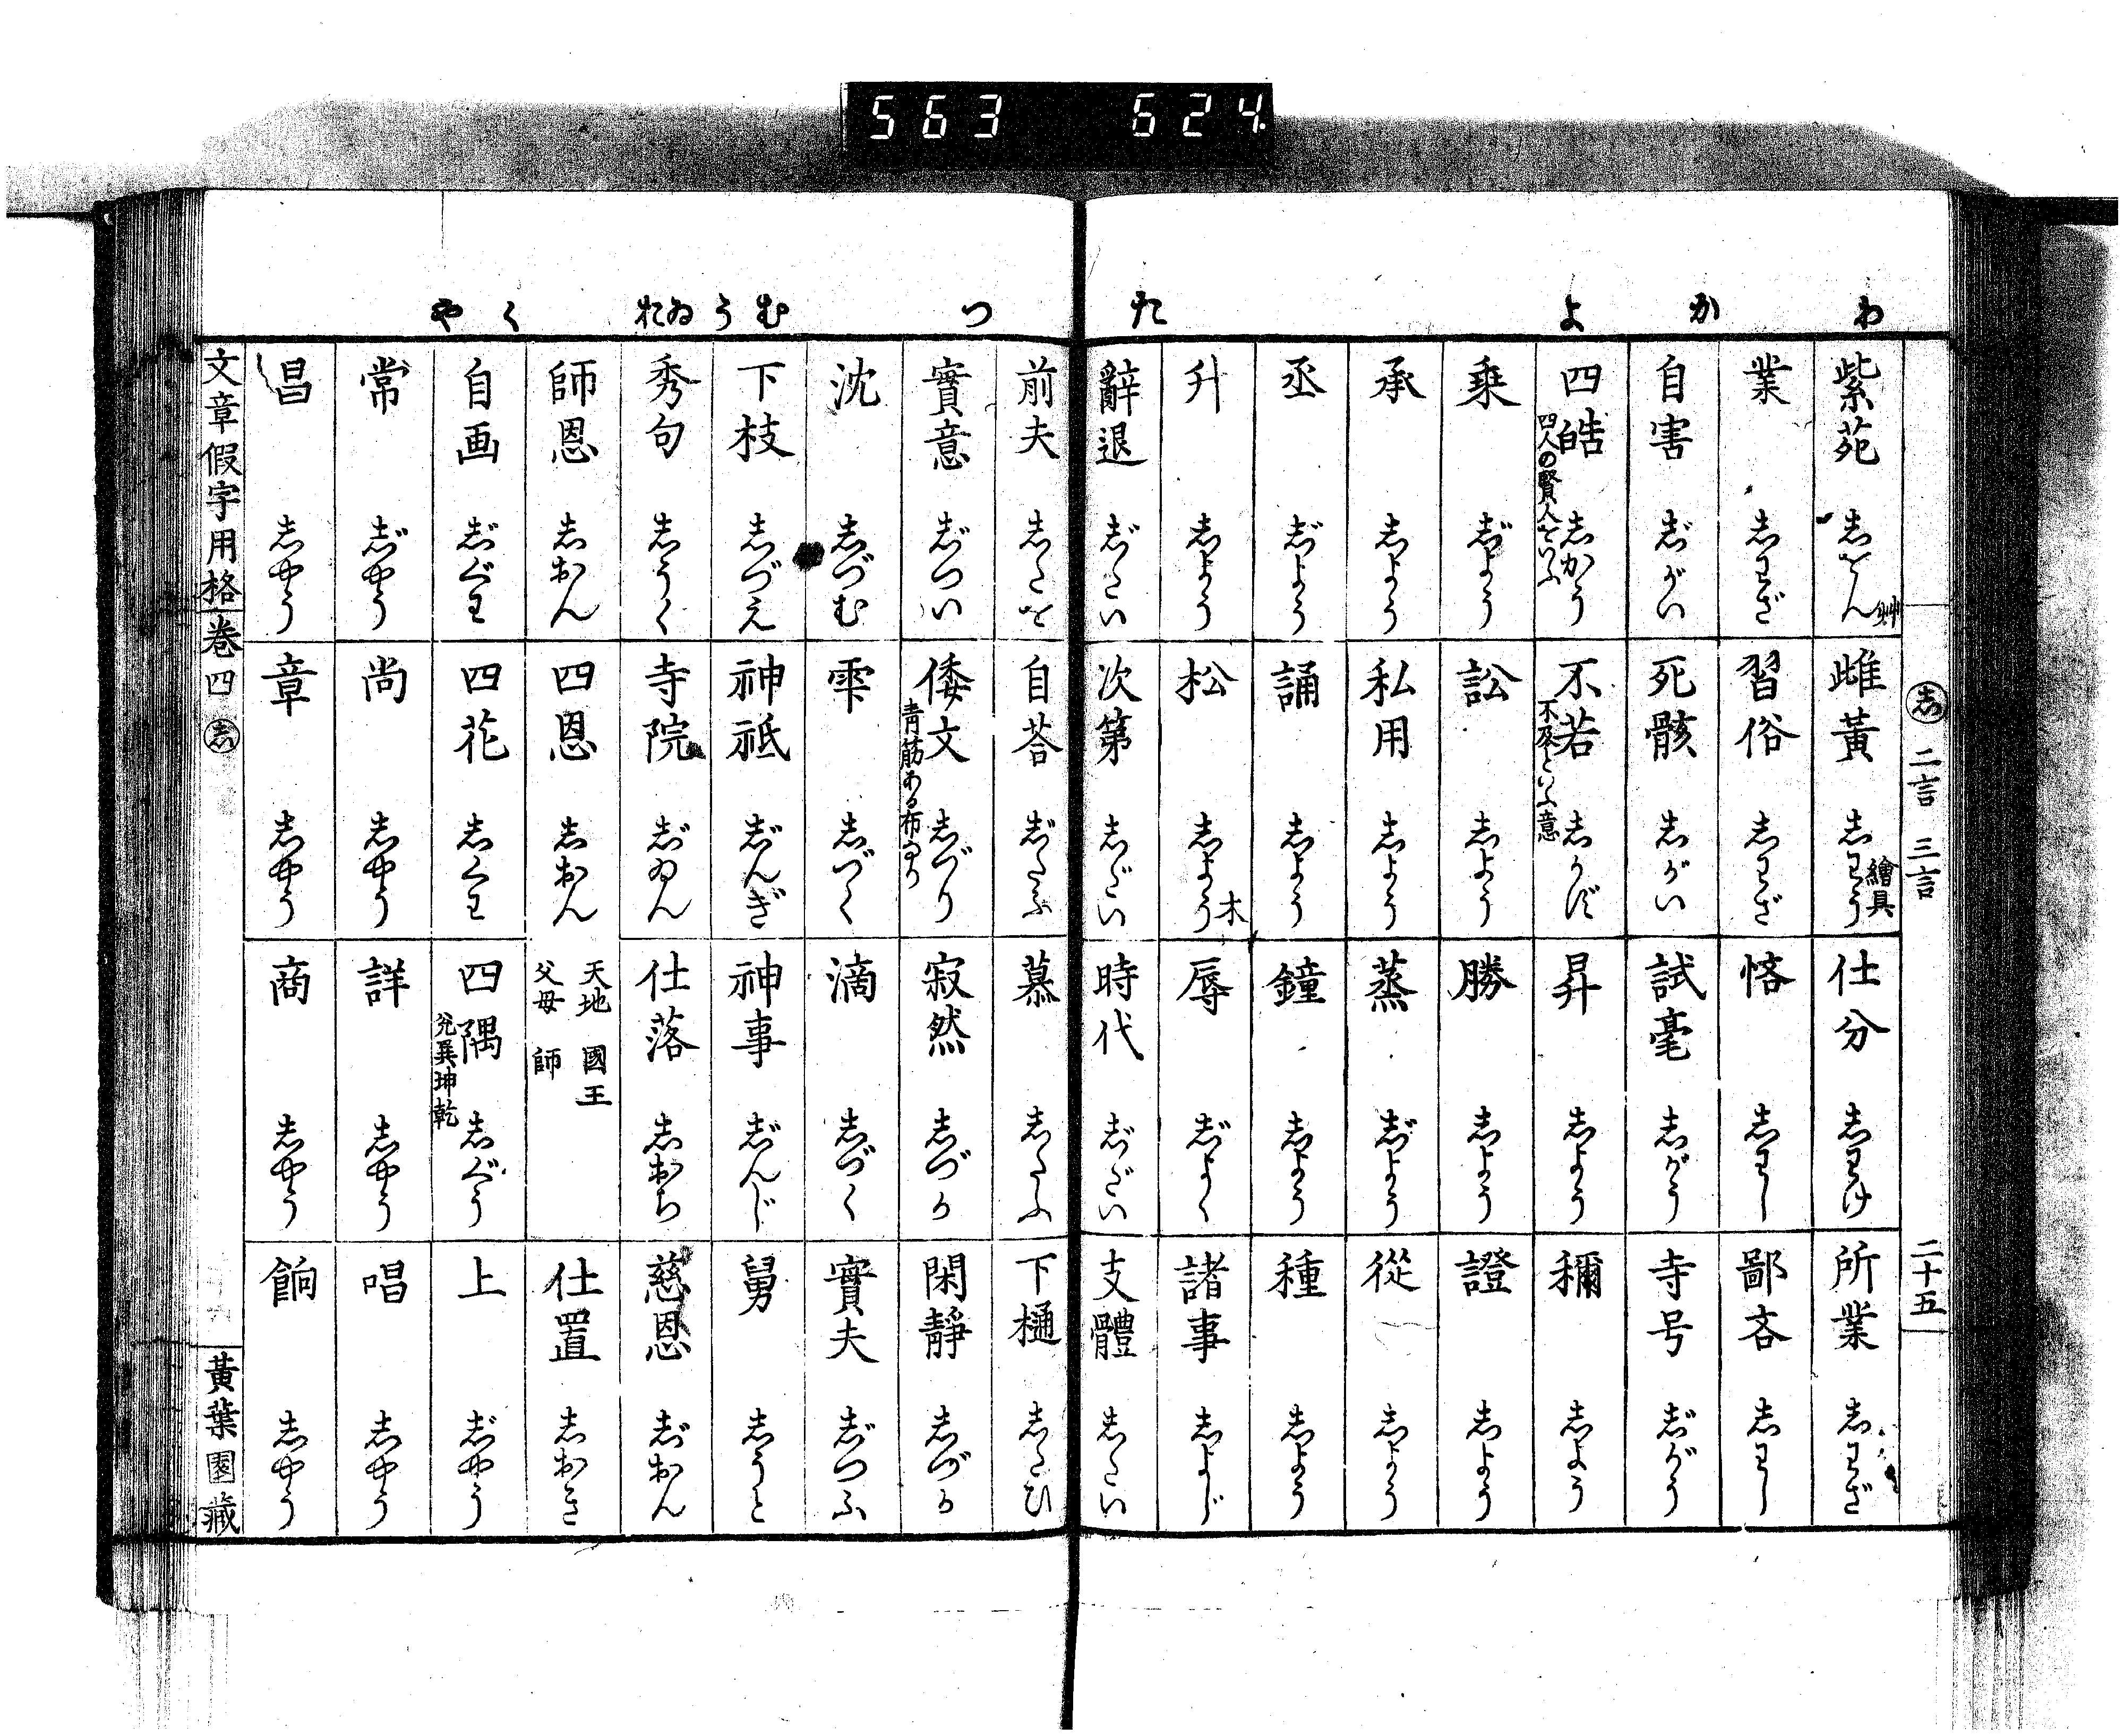 563 624.
わ か よ た
志 二言 三言 二十五
紫苑 しをん 艸
雌黃 しわう 繪具
仕分 しわけ
所業 しわざ
業 しわざ
習俗 しわざ
悋 しわし
鄙吝 しわし
自害 じがい
死骸 しがい
試毫 しがう
寺号 じがう
四皓 しかう 四人の賢人をいふ
不若 しかず 不及といふ意
昇 しよう
稱 しよう
乗 じよう
訟 しよう
勝 しよう
證 しよう
承 しよう
私用 しよう
蒸 じよう
從 しよう
丞 じよう
誦 しよう
鐘 しよう
種 しよう
升 しよう
松 しよう 木
辱 じよく
諸事 しよじ
辭退 じたい
次第 しだい
時代 じだい
支體 したい
つ むうゐお くや
前夫 したを
自荅 じたふ
慕 したふ
下樋 したひ
實意 じつい
倭文 しづり 青筋ある布なり
寂然 しづか
閑靜 しづか
沈 しづむ
雫 しづく
滴 しづく
實夫 じつふ
下枝 しづえ
神祇 じんぎ
神事 じんじ
舅 しうと
秀句 しうく
寺院 じゐん
仕落 しおち
慈恩 じおん
師恩 しおん
四恩 しおん 天地 國王 父母 師
仕置 しおき
自画 じぐわ
四花 しくわ
四隅 しぐう 兌巽坤乾
上 じやう
常 じやう
尚 しやう
詳 しやう
唱 しやう
昌 しやう
章 しやう
商 しやう
餉 しやう
文章假字用格 卷四 志 黃葉園藏